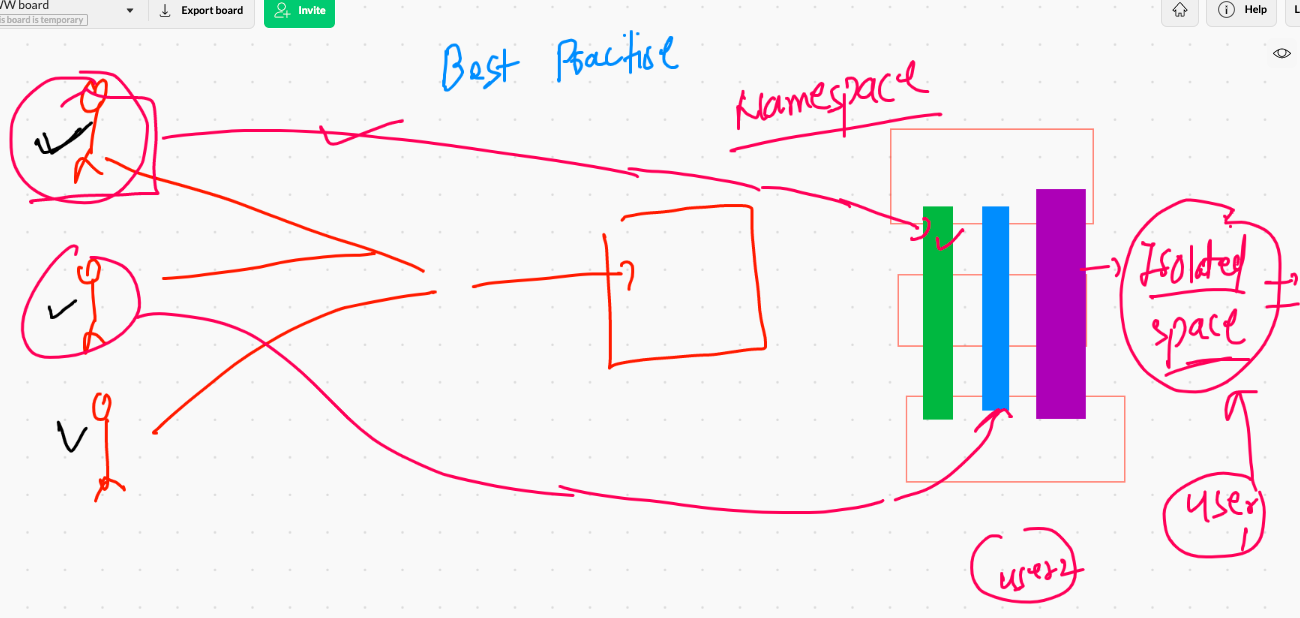 VW board
is board is temporary
Export board
Invite
Help
L
Best Practise
Namespace
Isolated
space
user
1
user2